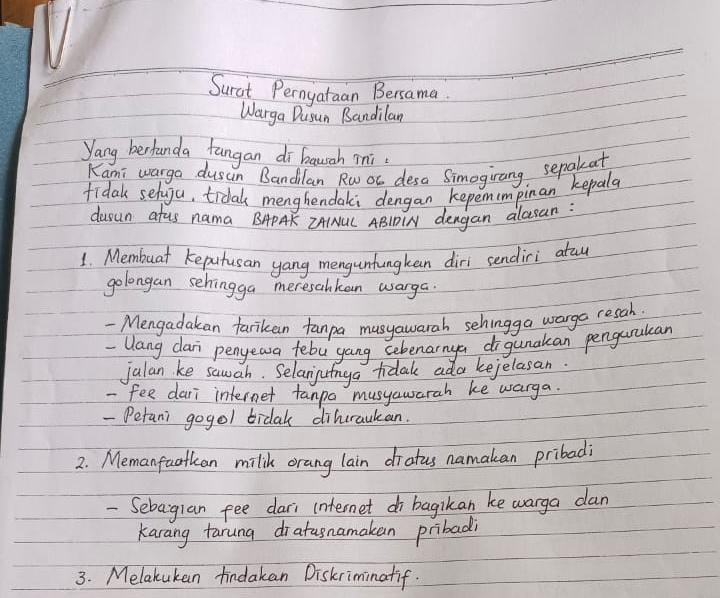 Surat Pernyataan Bersama.
Warga Dusun Bandilan
Yang bertanda tangan di bawah ini :
Kami warga dusun Bandilan RW 06 desa Simogirang sepakat
tidak setuju, tidak menghendaki dengan kepemimpinan kepala
dusun atas nama BAPAK ZAINUL ABIDIN dengan alasan :
1. Membuat keputusan yang menguntungkan diri sendiri atau
golongan sehingga meresahkan warga.
- Mengadakan tarikan tanpa musyawarah sehingga warga resah.
- Uang dari penyewa tebu yang sebenarnya digunakan pengurukan
jalan ke sawah. Selanjutnya tidak ada kejelasan.
- fee dari internet tanpa musyawarah ke warga.
- Petani gogol tidak dihiraukan.
2. Memanfaatkan milik orang lain diatas namakan pribadi
- Sebagian fee dari internet di bagikan ke warga dan
karang taruna diatasnamakan pribadi
3. Melakukan tindakan Diskriminatif.